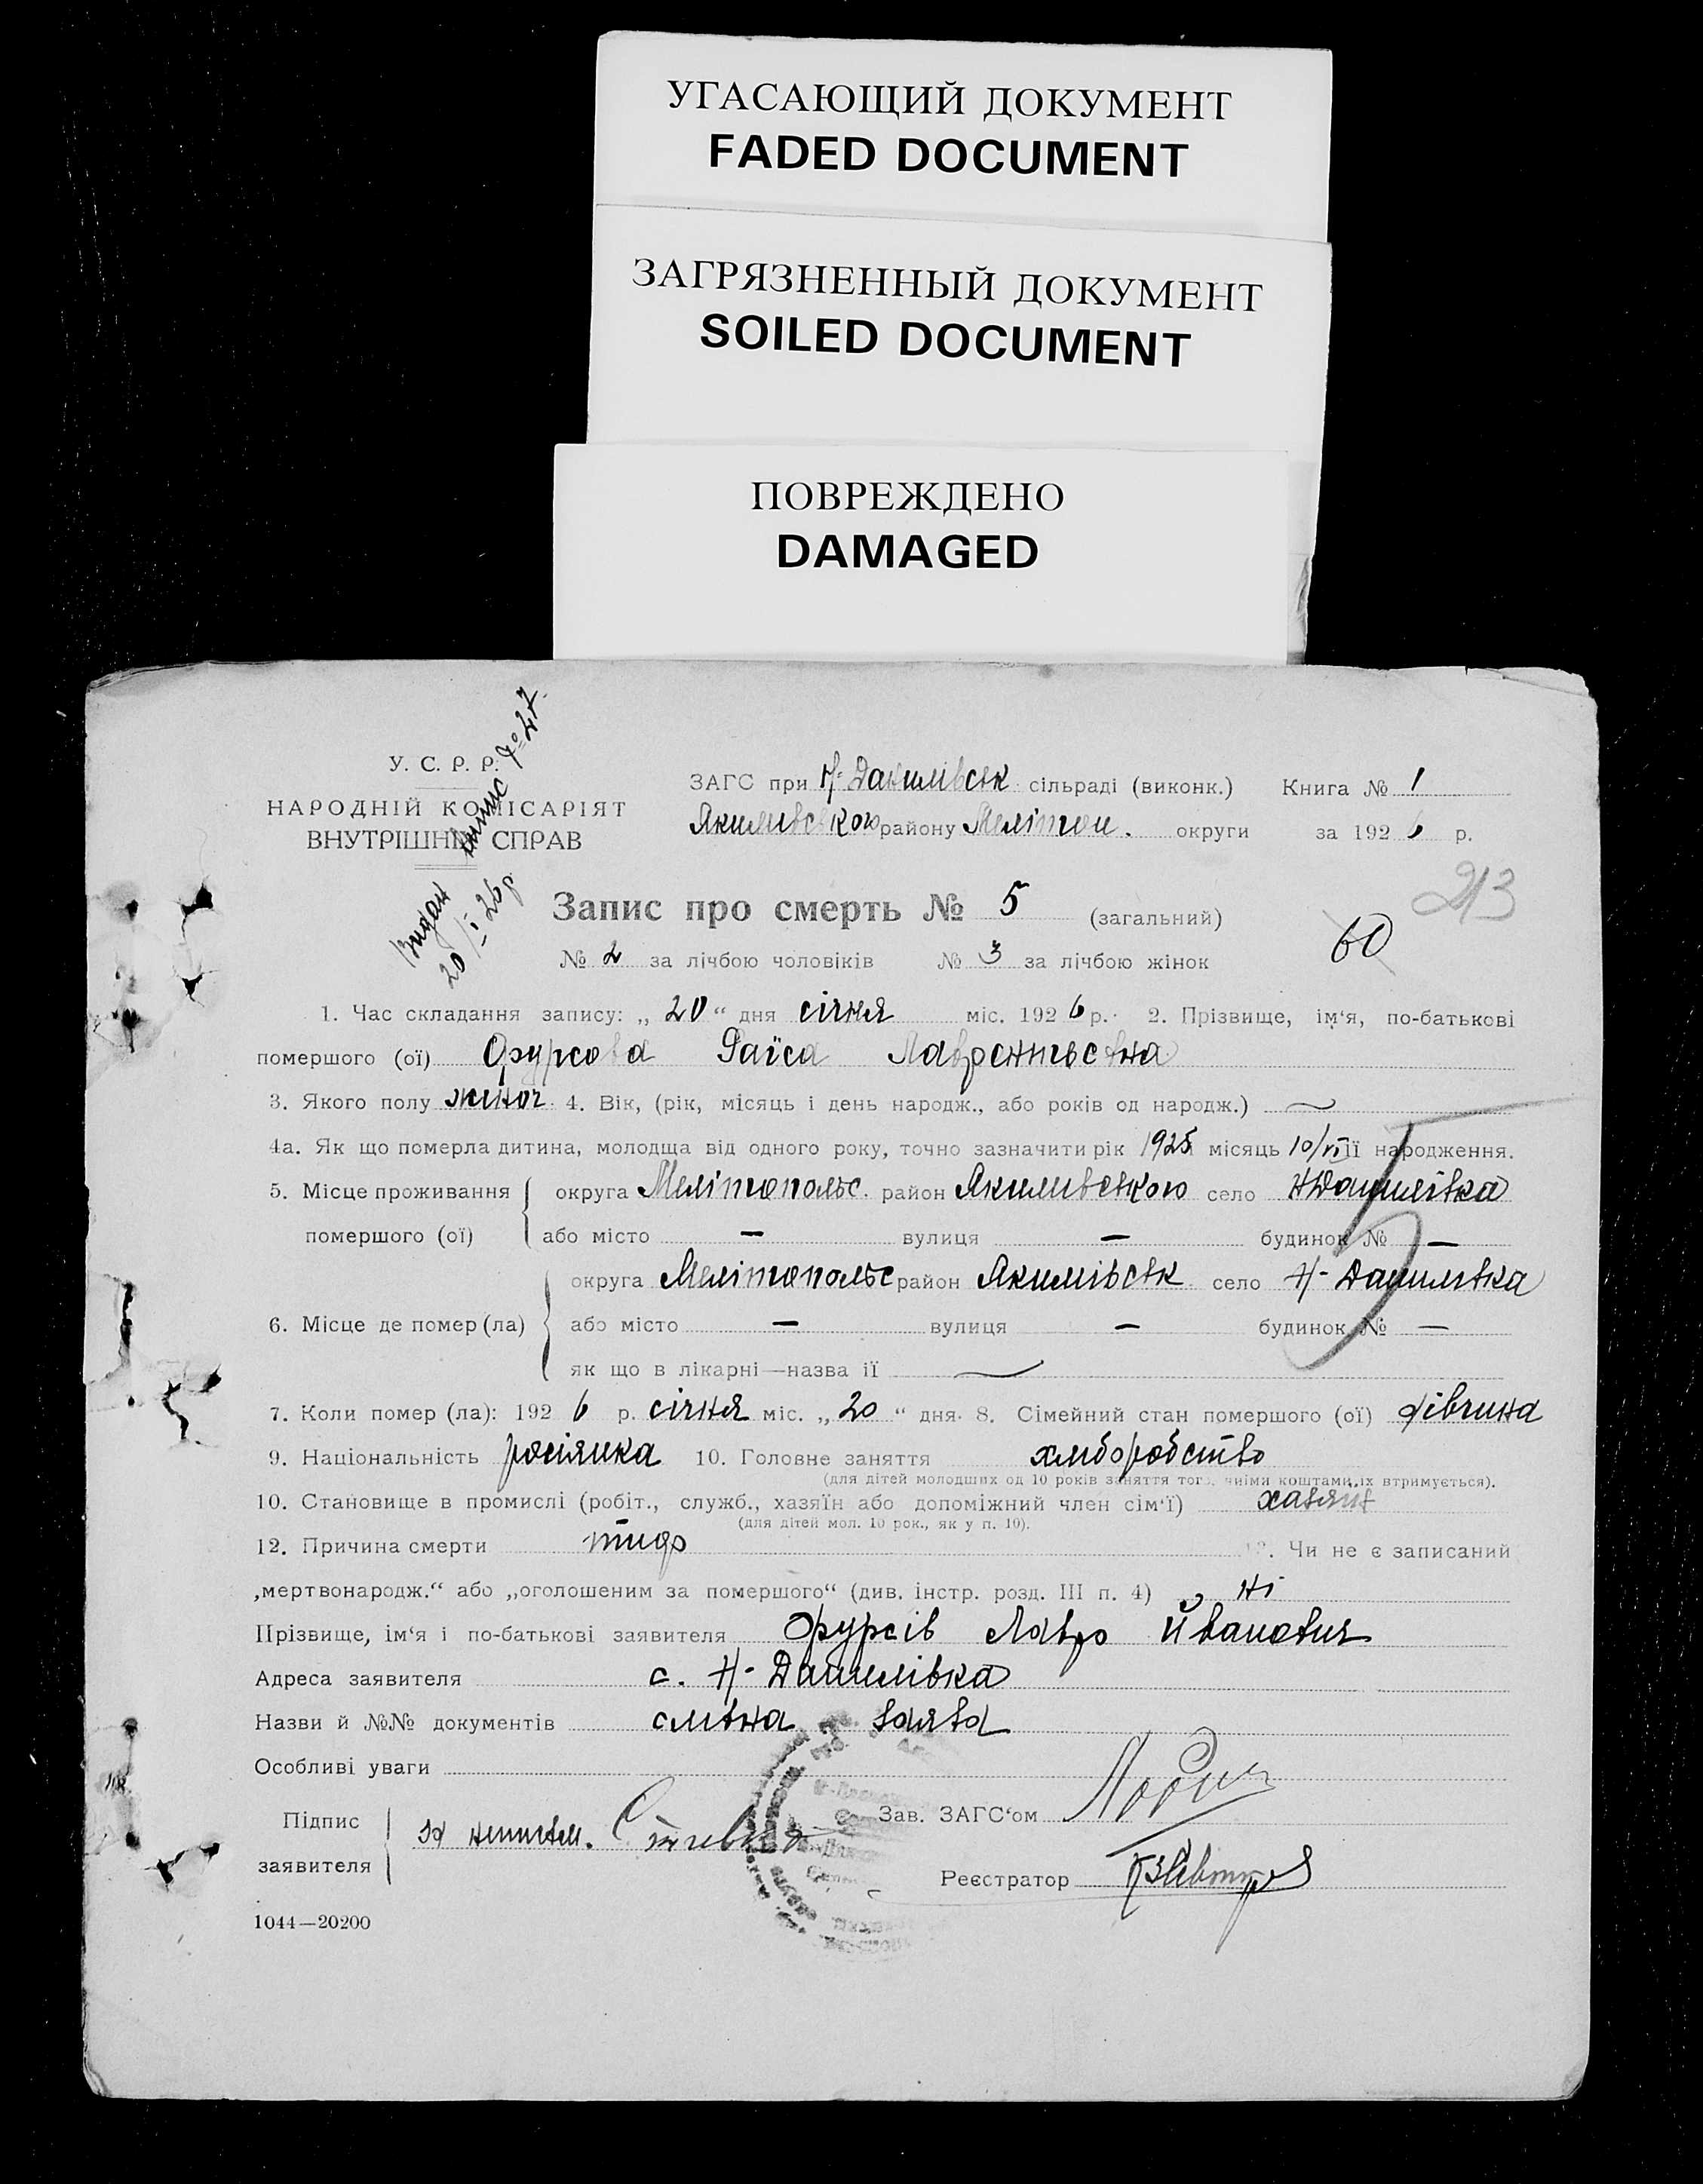 УГАСАЮЩИЙ ДОКУМЕНТ
FADED DOCUMENT
ЗАГРЯЗНЕННЫЙ ДОКУМЕНТ
SOILED DOCUMENT
ПОВРЕЖДЕНО
DAMAGED
У. С. Р. Р.
НАРОДНІЙ КОМІСАРІЯТ
ВНУТРІШНІХ СПРАВ
Видан випис № 27
20/I 26 р
ЗАГС при Н-Данилівськ сільраді (виконк.) Книга № 1
Якимівського району Мелітоп. округи за 1926 р.
213
Запис про смерть № 5 (загальний)
60
№ 2 за лічбою чоловіків № 3 за лічбою жінок
1. Час складання запису: „20“ дня січня міс. 1926 р. 2. Прізвище, ім‘я, по-батькові
помершого (ої) Фурсова Раїса Лаврентьєвна
3. Якого полу жіноч. 4. Вік, (рік, місяць і день народж., або років од народж.) —
4а. Як що померла дитина, молодща від одного року, точно зазначити рік 1925 місяць 10/VI її народження.
5. Місце проживання помершого (ої) округа Мелітопольс. район Якимівського село Н Данилівка
або місто — вулиця — будинок № —
6. Місце де помер (ла) округа Мелітопольс район Якимівськ село Н-Данилівка
або місто — вулиця — будинок № —
як що в лікарні—назва її —
7. Коли помер (ла): 1926 р. січня міс. „20“ дня. 8. Сімейний стан помершого (ої) дівчина
9. Національність росіянка 10. Головне заняття хліборобство
(для дітей молодших од 10 років заняття того, чиїми коштами їх втримується).
10. Становище в промислі (робіт., служб., хазяїн або допоміжний член сім‘ї) хазяїн
(для дітей мол. 10 рок., як у п. 10).
12. Причина смерти тиф 13. Чи не є записаний
„мертвонародж.“ або „оголошеним за помершого“ (див. інстр. розд. III п. 4) ні
Прізвище, ім‘я і по-батькові заявителя Фурсів Лавро Йванович
Адреса заявителя с. Н-Данилівка
Назви й №№ документів слівна заява
Особливі уваги
Підпис заявителя за неписьм.
Зав. ЗАГС‘ом
Реєстратор
1044—20200